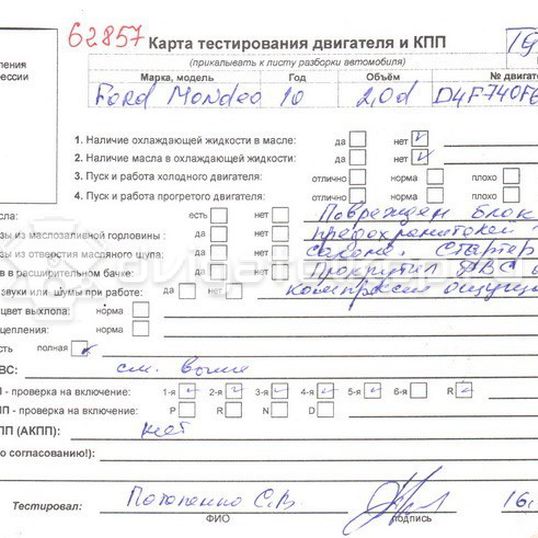 62857 Карта тестирования двигателя и КПП
(прикалывать к листу разборки автомобиля)
Марка, модель Год Объём № двигат
Ford Mondeo 10 2,0d D4F740F6
1. Наличие охлаждающей жидкости в масле: да нет
2. Наличие масла в охлаждающей жидкости: да нет
3. Пуск и работа холодного двигателя: отлично норма плохо
4. Пуск и работа прогретого двигателя: отлично норма плохо
сла: есть нет Поврежден блок
зы из маслозаливной горловины : да нет предохранителей
зы из отверстия масляного щупа: да нет салоне. Стартер
в в расширительном бачке: да нет прокрутил ДВС
звуки или шумы при работе: да нет компрессия ощущ
цвет выхлопа: норма
цепления: норма
сть полная
ВС: см. выше
П - проверка на включение: 1-я 2-я 3-я 4-я 5-я 6-я R
ПП - проверка на включение: P R N D
ПП (АКПП): нет
о согласованию!):
Тестировал: Потопенко С.В. 16.
ФИО подпись